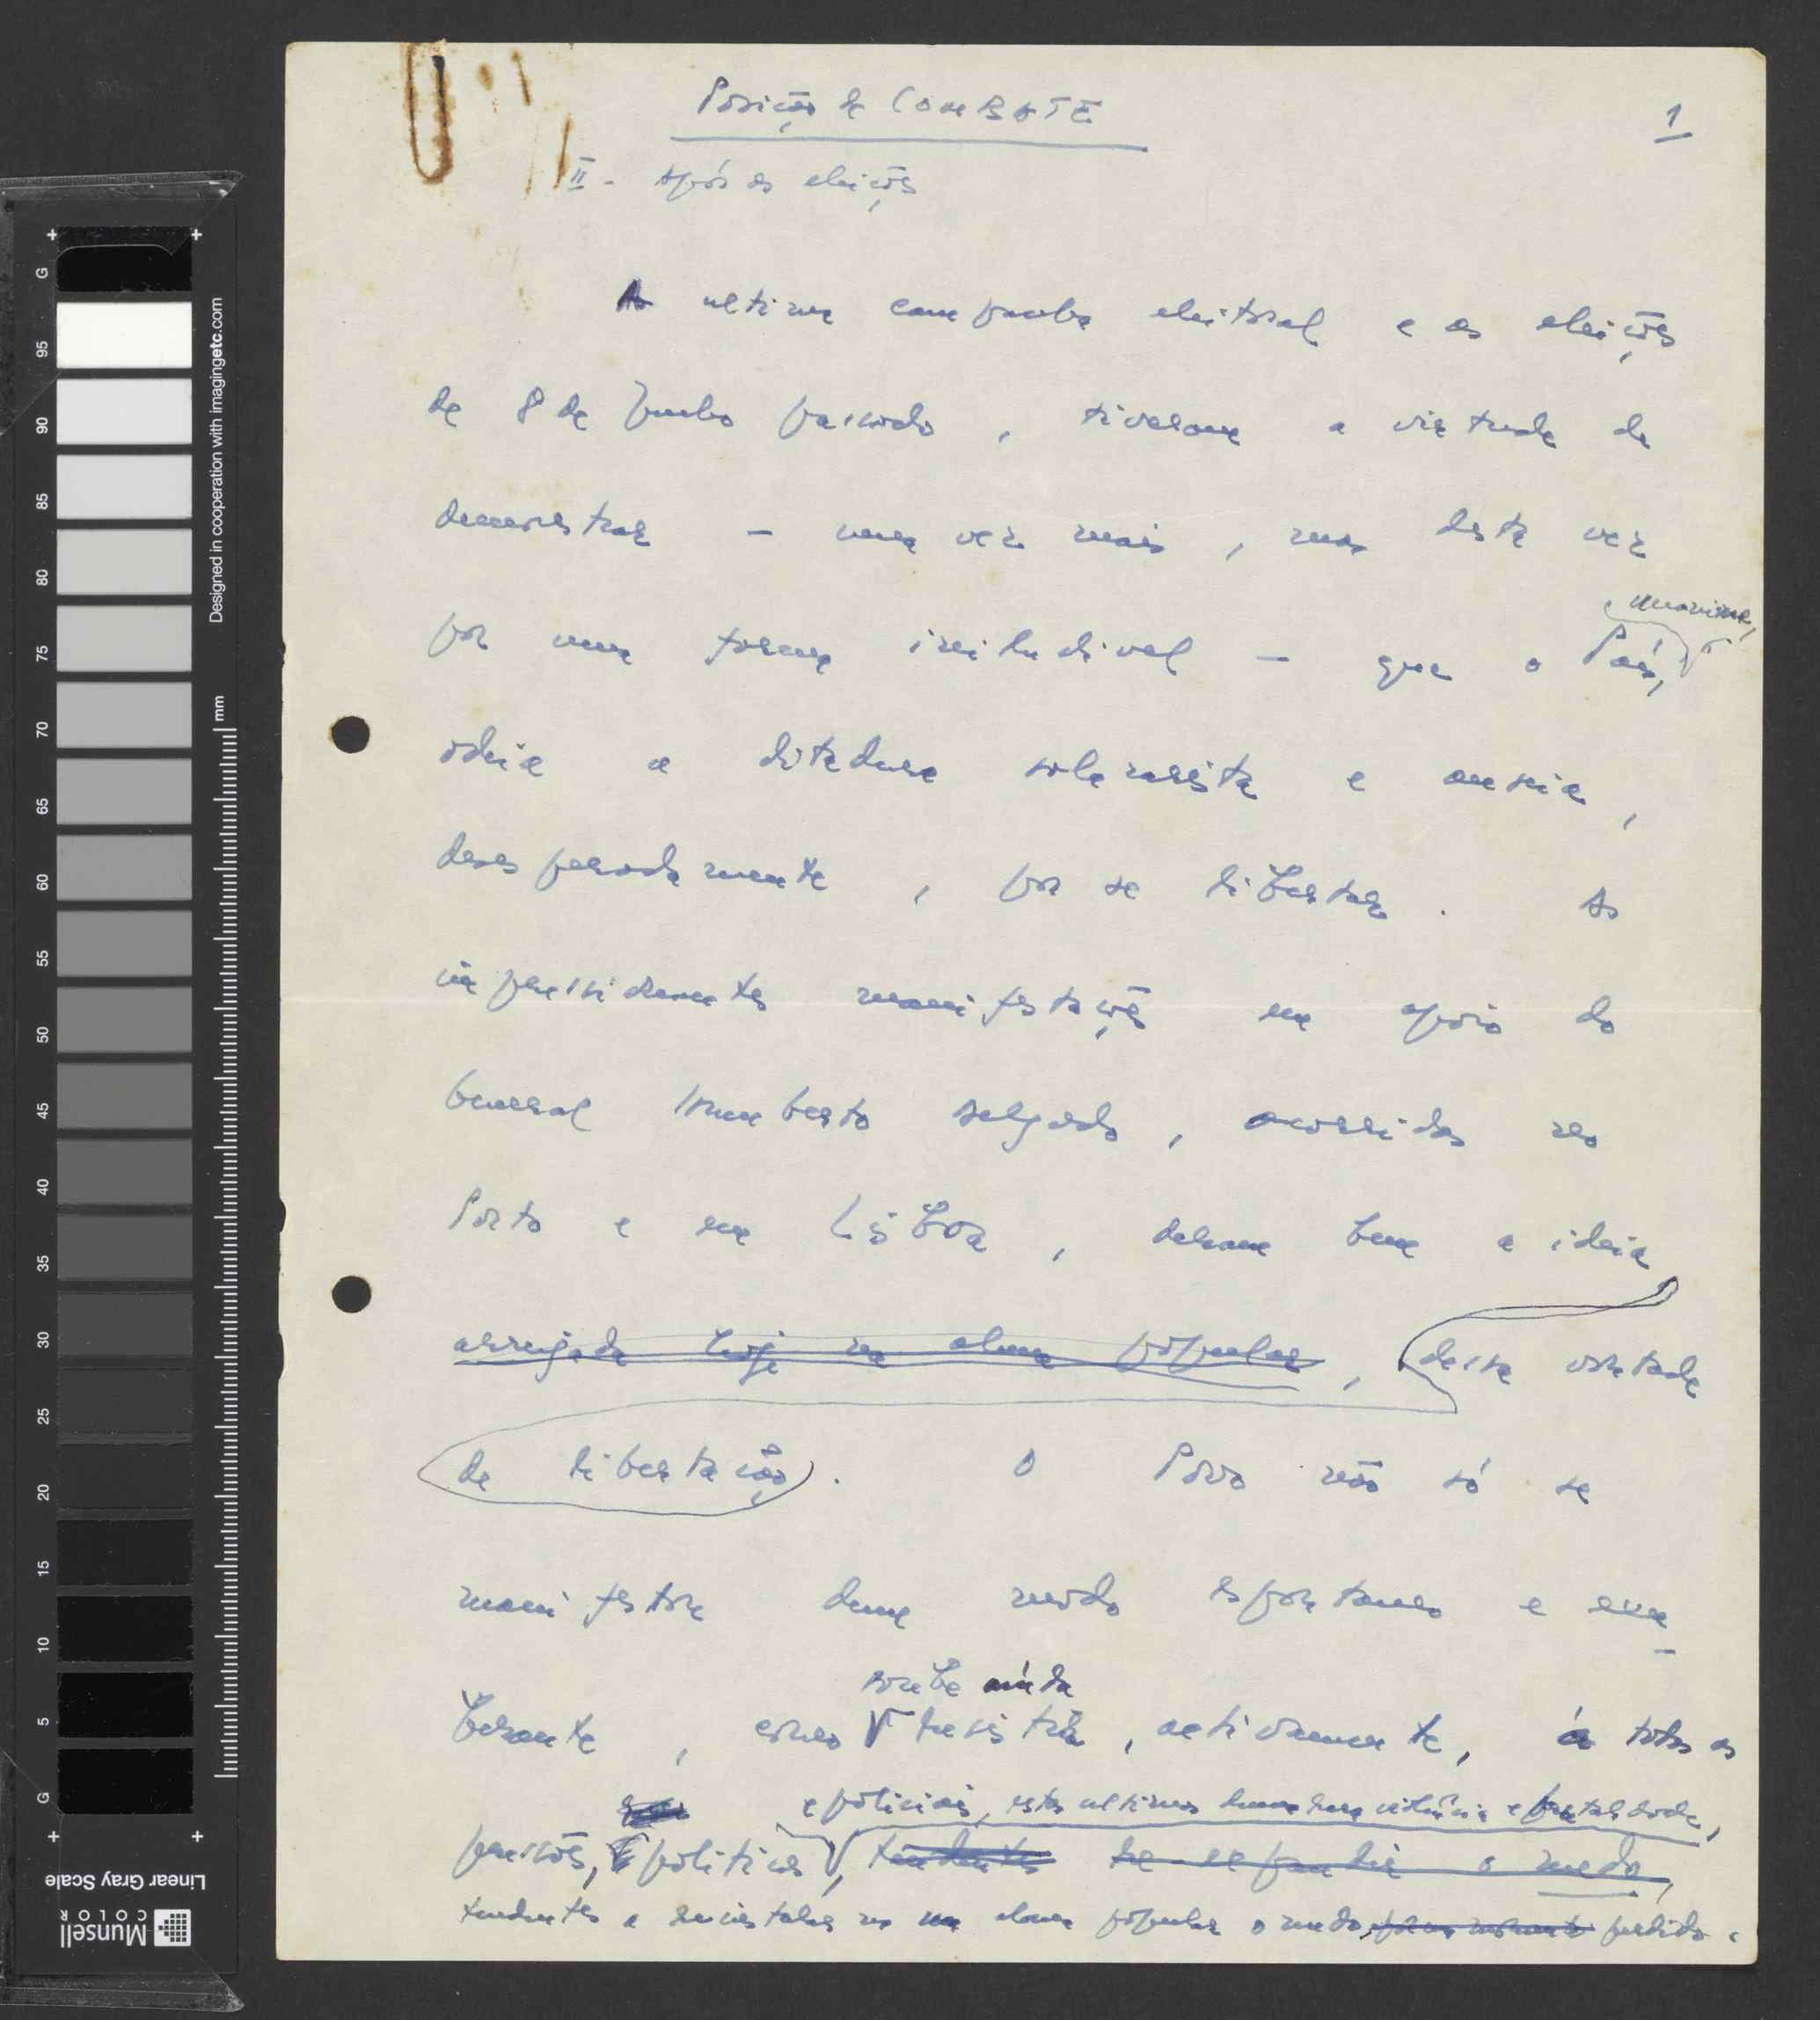 Posição de COMBATE
1
II - Após as eleições
A ultima campanha eleitoral e as eleições
de 8 de Junho passado, tiveram a virtude de
demonstrar - uma vez mais, mas desta vez
unanime,
por uma forma iniludivel - que o País,
odeia a ditadura salazarista e anseia,
desesperadamente, por se libertar. As
impressionantes manifestações em apoio do
General Humberto Delgado, ocorridas no
Porto e em Lisboa, deram bem a ideia
arreigada hoje na alma popular, dessa vontade
de libertação. O Povo não só se
manifestou dum modo espontaneo e exu-
soube ainda
berante, como resistir, activamente, a todas as
e policiais, estas ultimas duma rara violência e brutalidade,
pressões, politicas, tendentes a expandir o medo,
tendentes a reinstalar na alma popular o medo, perdido.
Designed in cooperation with imagingetc.com
mm
G 95 90 85 80 75 70 65 60 55 50 45 40 35 30 25 20 15 10 5 G
Linear Gray Scale
Munsell
COLOR